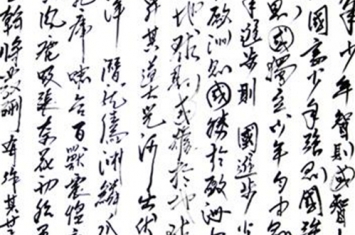 少年智則國智
國富少年強則國強
則國獨立少年自由
年進步則國進步少
歐洲則國勝於歐洲
地球則國雄於地球
升其道大光河出伏
洋潛龍騰淵鱗爪
谷百獸震惶
吸張奇花初胎
干將發硎有作其芒